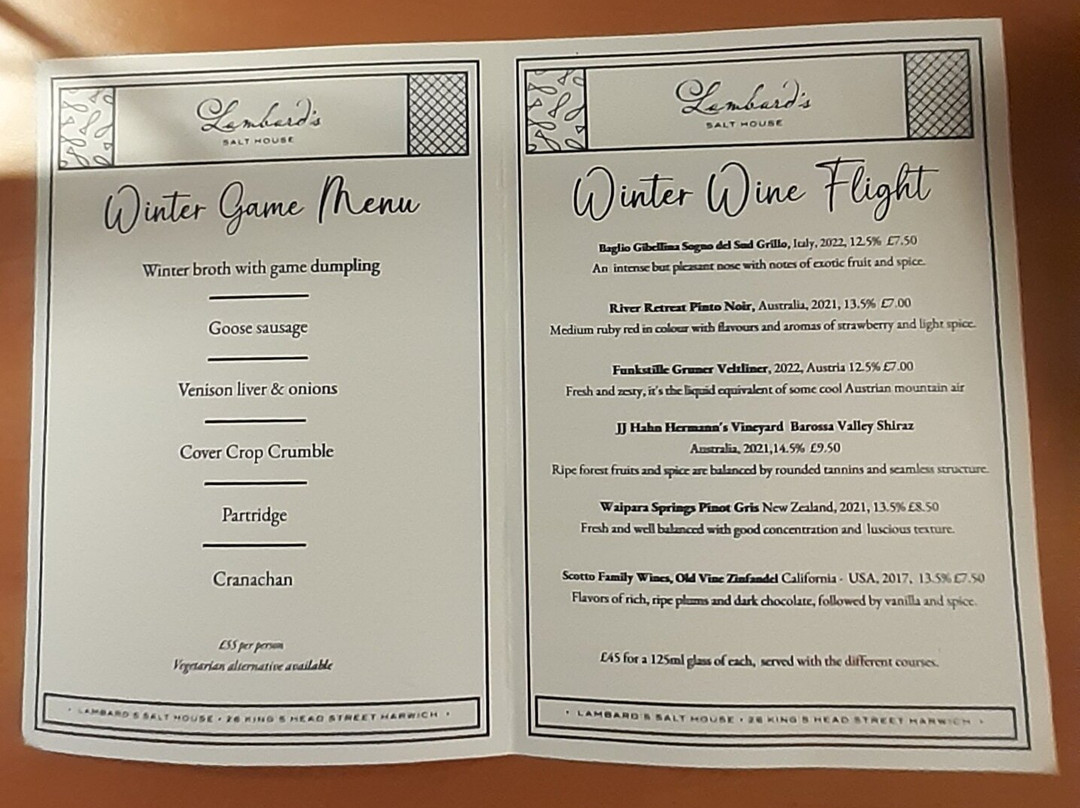 Lambard's
SALT HOUSE
Winter Game Menu
Winter broth with game dumpling
Goose sausage
Venison liver & onions
Cover Crop Crumble
Partridge
Cranachan
£55 per person
Vegetarian alternative available
· LAMBARD'S SALT HOUSE · 26 KING'S HEAD STREET HARWICH ·
Lambard's
SALT HOUSE
Winter Wine Flight
Baglio Gibellina Sogno del Sud Grillo, Italy, 2022, 12.5% £7.50
An intense but pleasant nose with notes of exotic fruit and spice.
River Retreat Pinto Noir, Australia, 2021, 13.5% £7.00
Medium ruby red in colour with flavours and aromas of strawberry and light spice.
Funkstille Gruner Veltliner, 2022, Austria 12.5% £7.00
Fresh and zesty, it's the liquid equivalent of some cool Austrian mountain air
JJ Hahn Hermann's Vineyard Barossa Valley Shiraz
Australia, 2021,14.5% £9.50
Ripe forest fruits and spice are balanced by rounded tannins and seamless structure.
Waipara Springs Pinot Gris New Zealand, 2021, 13.5% £8.50
Fresh and well balanced with good concentration and luscious texture.
Scotto Family Wines, Old Vine Zinfandel California - USA, 2017, 13.5% £7.50
Flavors of rich, ripe plums and dark chocolate, followed by vanilla and spice.
£45 for a 125ml glass of each, served with the different courses.
· LAMBARD'S SALT HOUSE · 26 KING'S HEAD STREET HARWICH ·